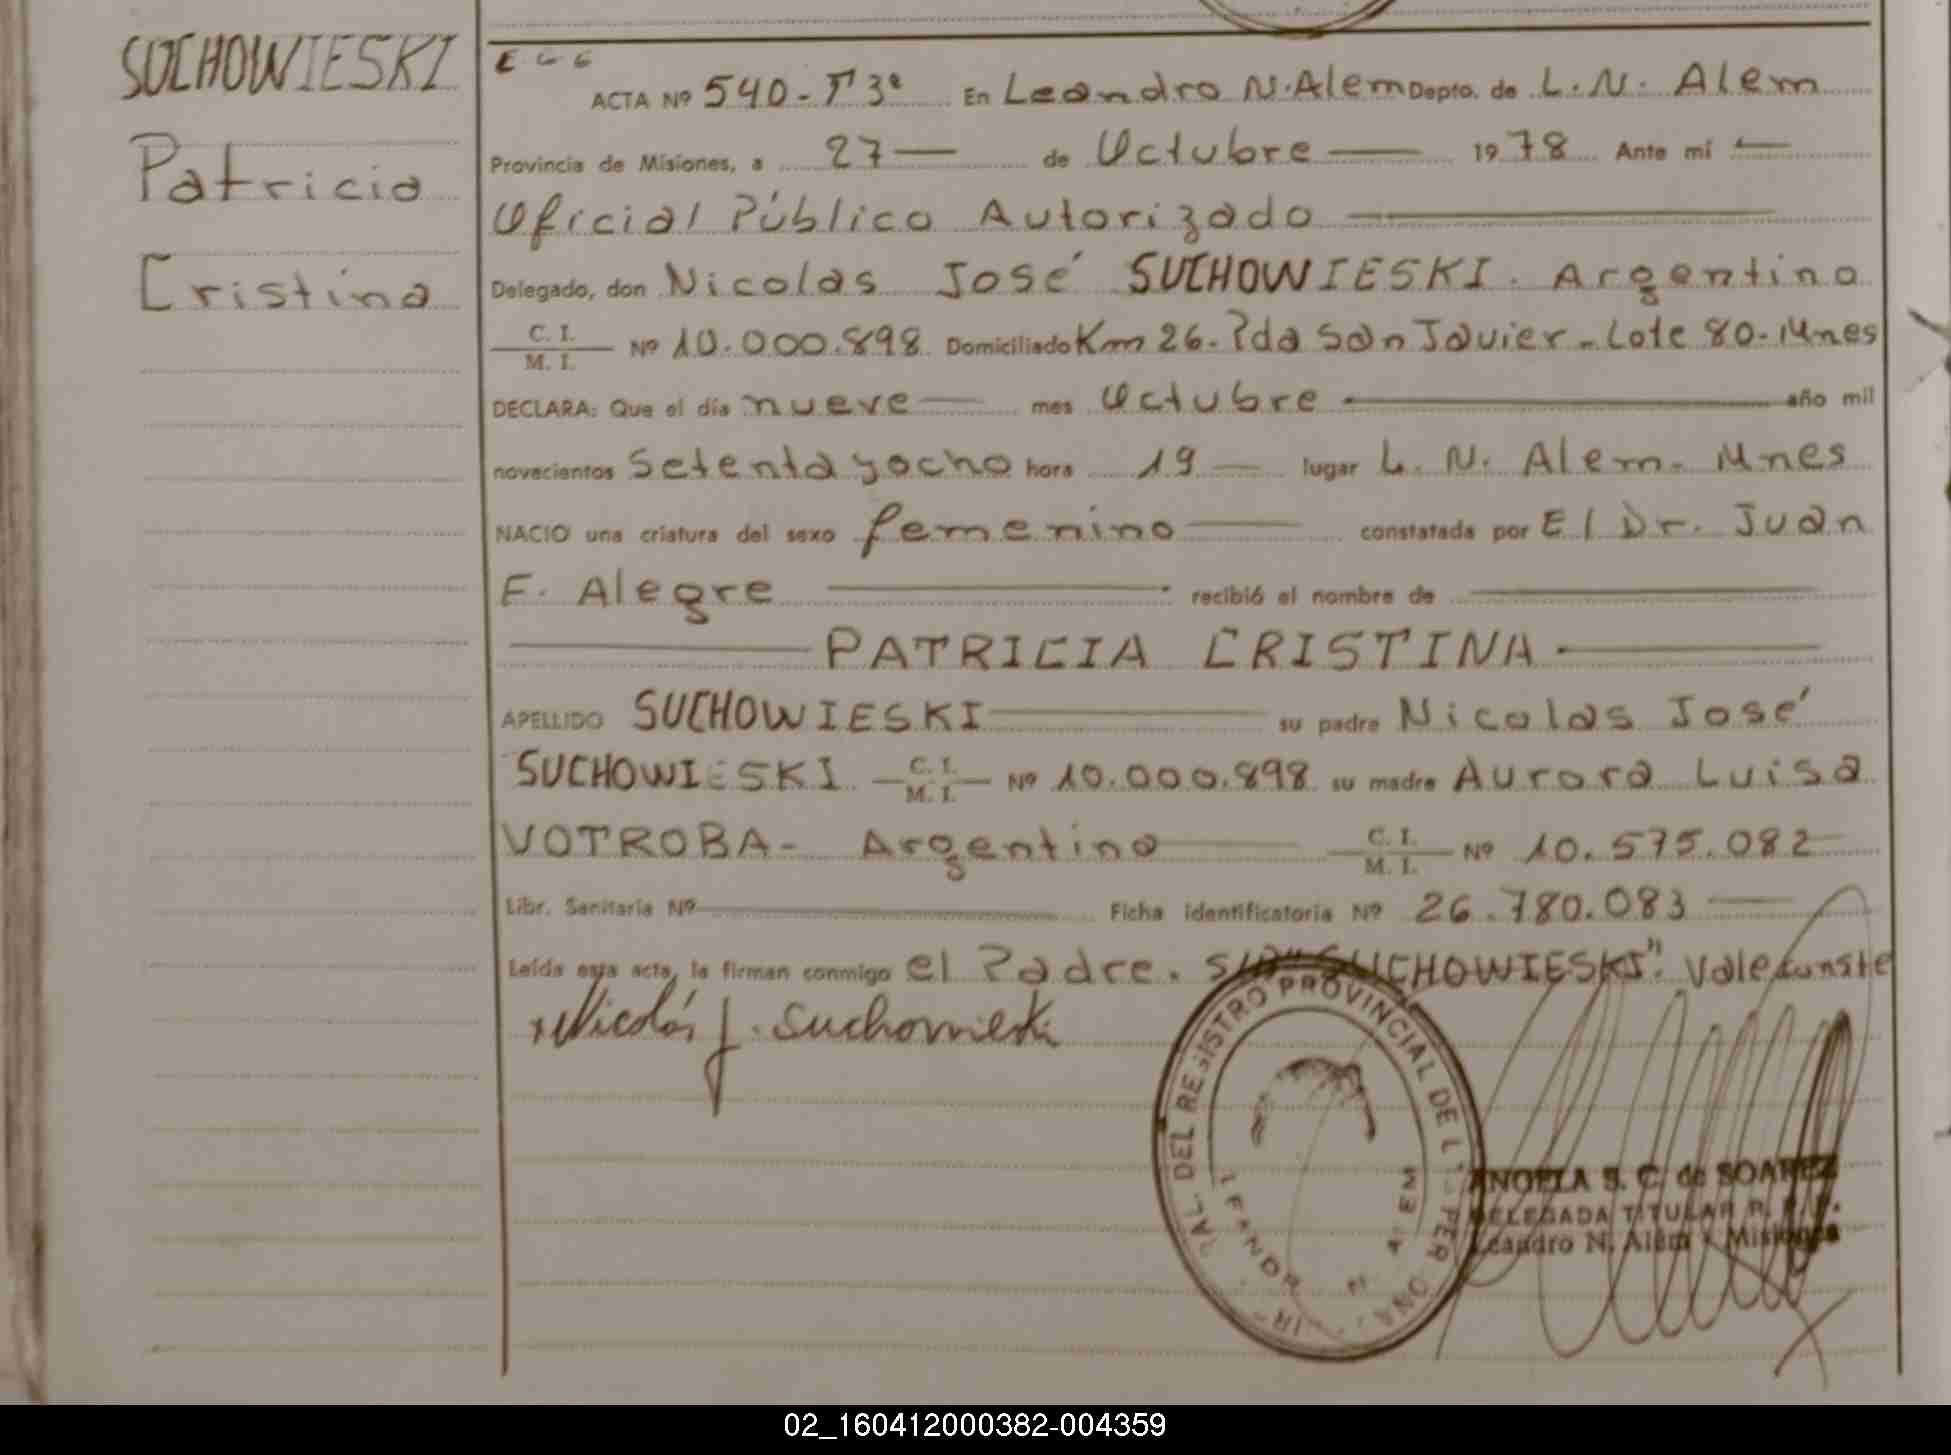 SUCHOWIESKI
Patricia
Cristina
ACTA Nº 540 - Tº 3º En Leandro N. Alem Depto. de L. N. Alem
Provincia de Misiones, a 27 — de Octubre — 1978 Ante mí —
Oficial Público Autorizado —
Delegado, don Nicolas José SUCHOWIESKI. Argentino
C. I.
M. I. Nº 10.000.898 Domiciliado Km 26. Pda San Javier - Lote 80 - Mnes
DECLARA: Que el día nueve — mes Octubre — año mil
novecientos Setenta y ocho hora 19 — lugar L. N. Alem - Mnes
NACIO una criatura del sexo femenino — constatada por El Dr. Juan
E. Alegre — recibió el nombre de —
— PATRICIA CRISTINA —
APELLIDO SUCHOWIESKI — su padre Nicolas José
SUCHOWIESKI. — C. I. / M. I. — Nº 10.000.898 su madre Aurora Luisa
VOTROBA - Argentina — C. I. / M. I. Nº 10.575.082 —
Libr. Sanitaria Nº — Ficha identificatoria Nº 26.780.083 —
Leída esta acta, la firman conmigo el Padre. S/R "SUCHOWIESKI". Vale. Conste
Nicolás J. Suchowieski
REGISTRO PROVINCIAL DE L
ANGELA S. C. de SOAREZ
DELEGADA TITULAR R. P. P.
Leandro N. Alem - Misiones
02_160412000382-004359